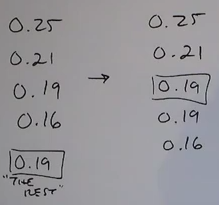 0.25
0.21
0.19
0.16
0.19
"THE
REST"
→
0.25
0.21
0.19
0.19
0.16